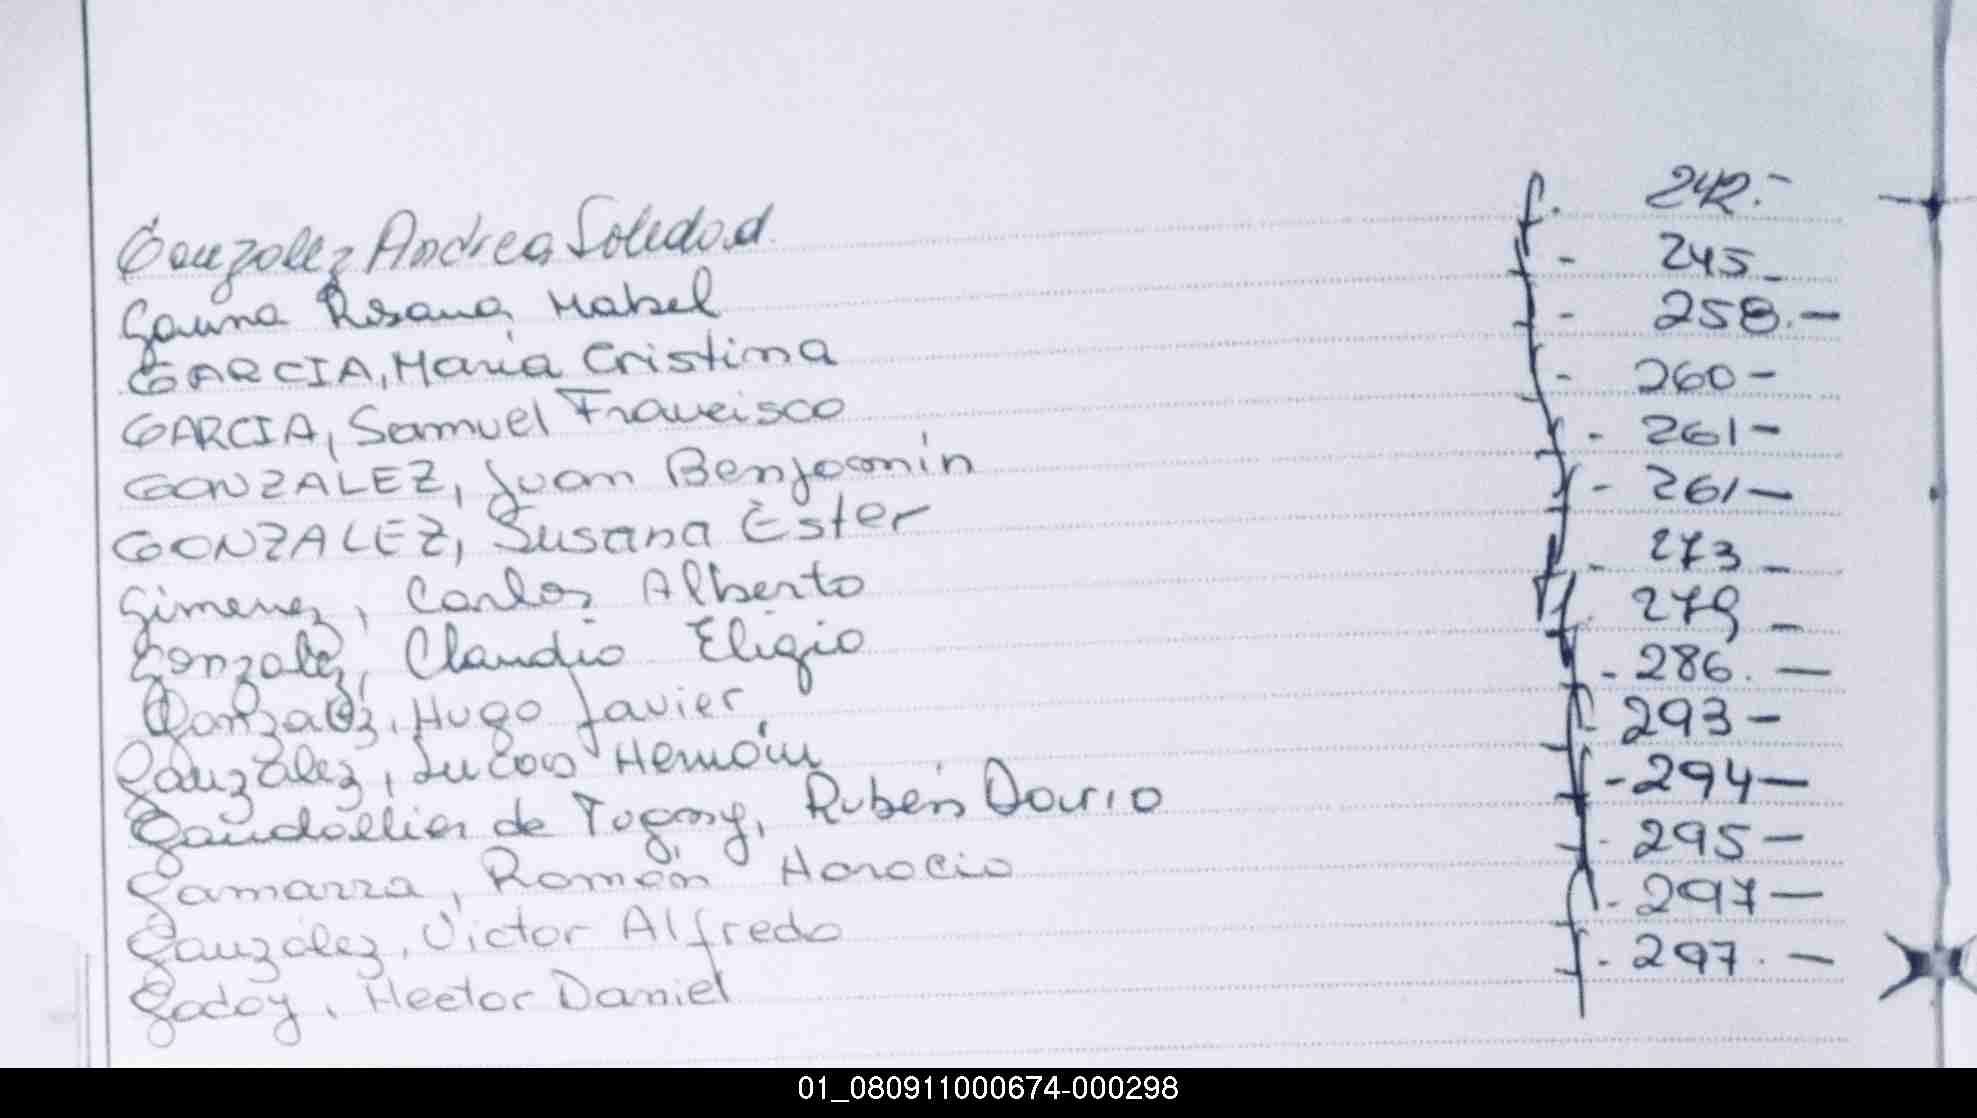 Gonzalez Andrea Soledad f. 242.-
Gauna Rosana Mabel f - 245 -
GARCIA, Maria Cristina f - 258.-
GARCIA, Samuel Francisco f - 260 -
GONZALEZ, Juan Benjamin f - 261 -
GONZALEZ, Susana Ester f - 261 -
Gimenez, Carlos Alberto f - 273 -
Gonzalez, Claudio Eligio f. 279 -
Gonzalez, Hugo Javier f - 286. -
González, Lucas Hernán f - 293 -
de Rubén Dario f - 294 -
Gamarra, Román Horacio f - 295 -
González, Victor Alfredo f - 297 -
Godoy, Hector Daniel f - 297. -
01_080911000674-000298